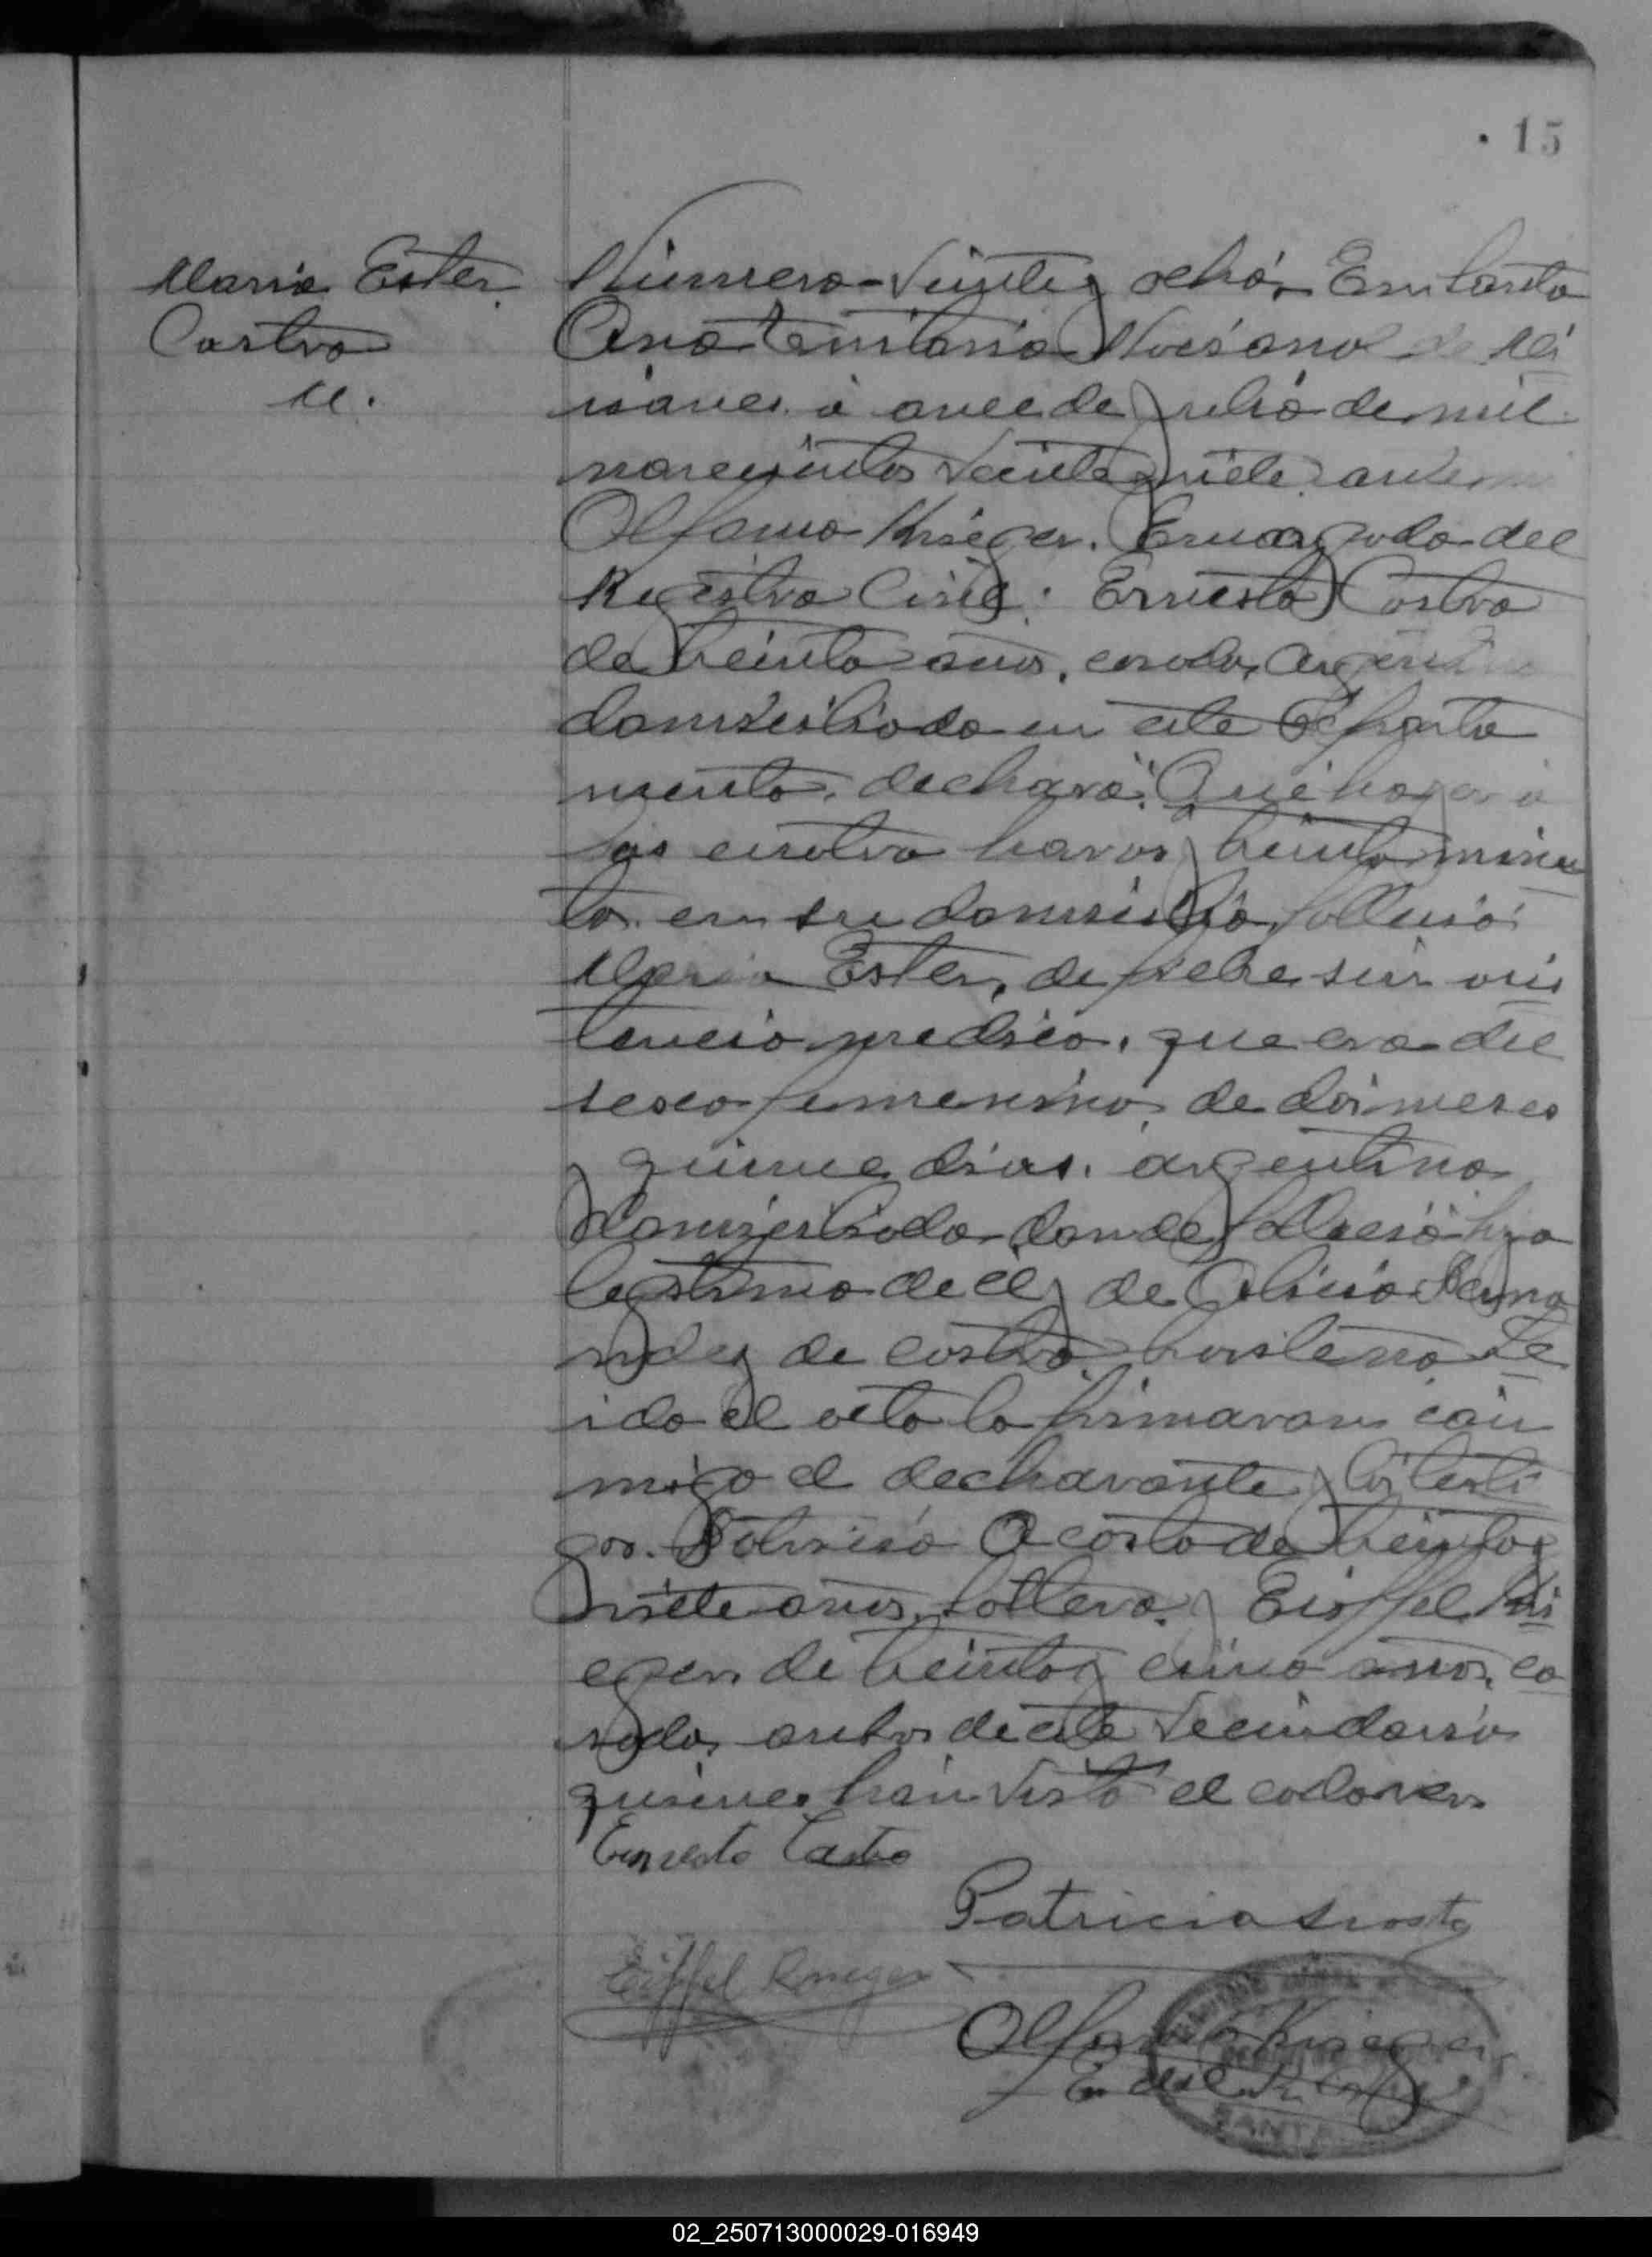 15
Maria Ester
Castro
M.
Numero Veinte y ocho, En Santa
Ana territorio Nacional de Mi
siones á once de julio de mil
novecientos veinte y siete ante mi
Krieger. Encargado del
Registro Civil: Ernesto Castro
de treinta años, casado, argentino
domiciliado en este Departa
mento, declaró: Que hoy á
las cuatro horas y treinta minu
tos en su domicilio, fallesió
Maria Ester, de fiebre sin asis
tencia medica, que era del
sexo femenino, de dos meses
y quince dias, argentina
domiciliada donde fallesió hija
legitima de él y de Ferna
ndez de Castro, Le
ida el acta la firmaron con
migo el declarante y los testi
gos. Acosta de treinta y
siete años, soltero, y Eiffel Kri
eger de treinta y cinco años, ca
sado, ambos de este vecindario
quienes han visto el cadaver
Ernesto Castro
Eiffel Krieger
Krieger
SANTA
02_250713000029-016949